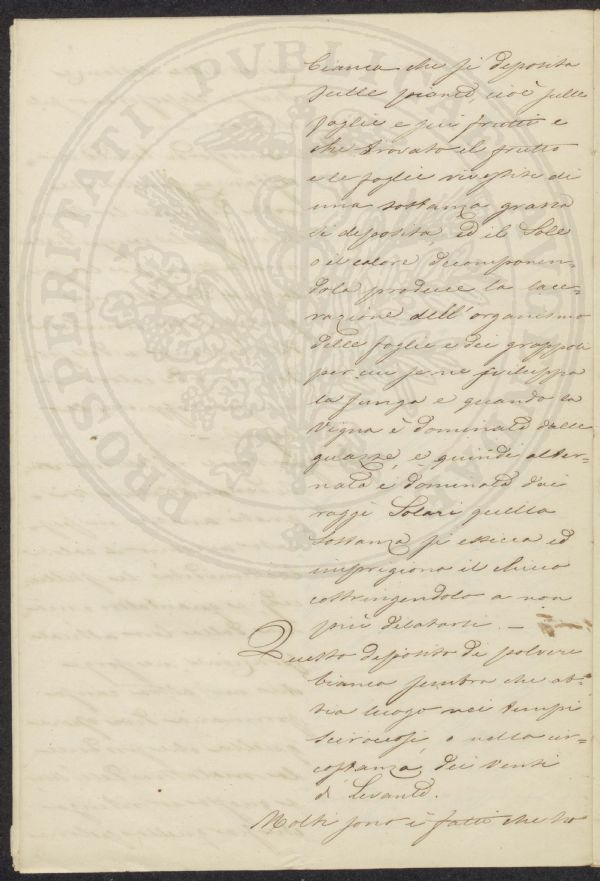 bianca che si deposita
sulle piante, cioè sulle
foglie e sui frutti e
che trovato il frutto
e le foglie rivestite di
una sostanza grassa
si deposita, ed il Sole
o il calore decomponen=
dola produce la lace=
razione dell'organismo
delle foglie e dei grappoli
per cui se ne sviluppa
la funga e quando la
Vigna è dominata dalle
guazze, e quindi alter=
nata è dominata dai
raggi Solari quella
Sostanza si essicca ed
imprigiona il chicco
costringendolo a non
più dilatarsi. _
Questo deposito di polvere
bianca sembra che ab=
bia luogo nei tempi
Scirocosi o nella cir=
costanza, dei Venti
di Levante.
Molti sono i fatti che ho
PROSPERITATI PUBLICAE